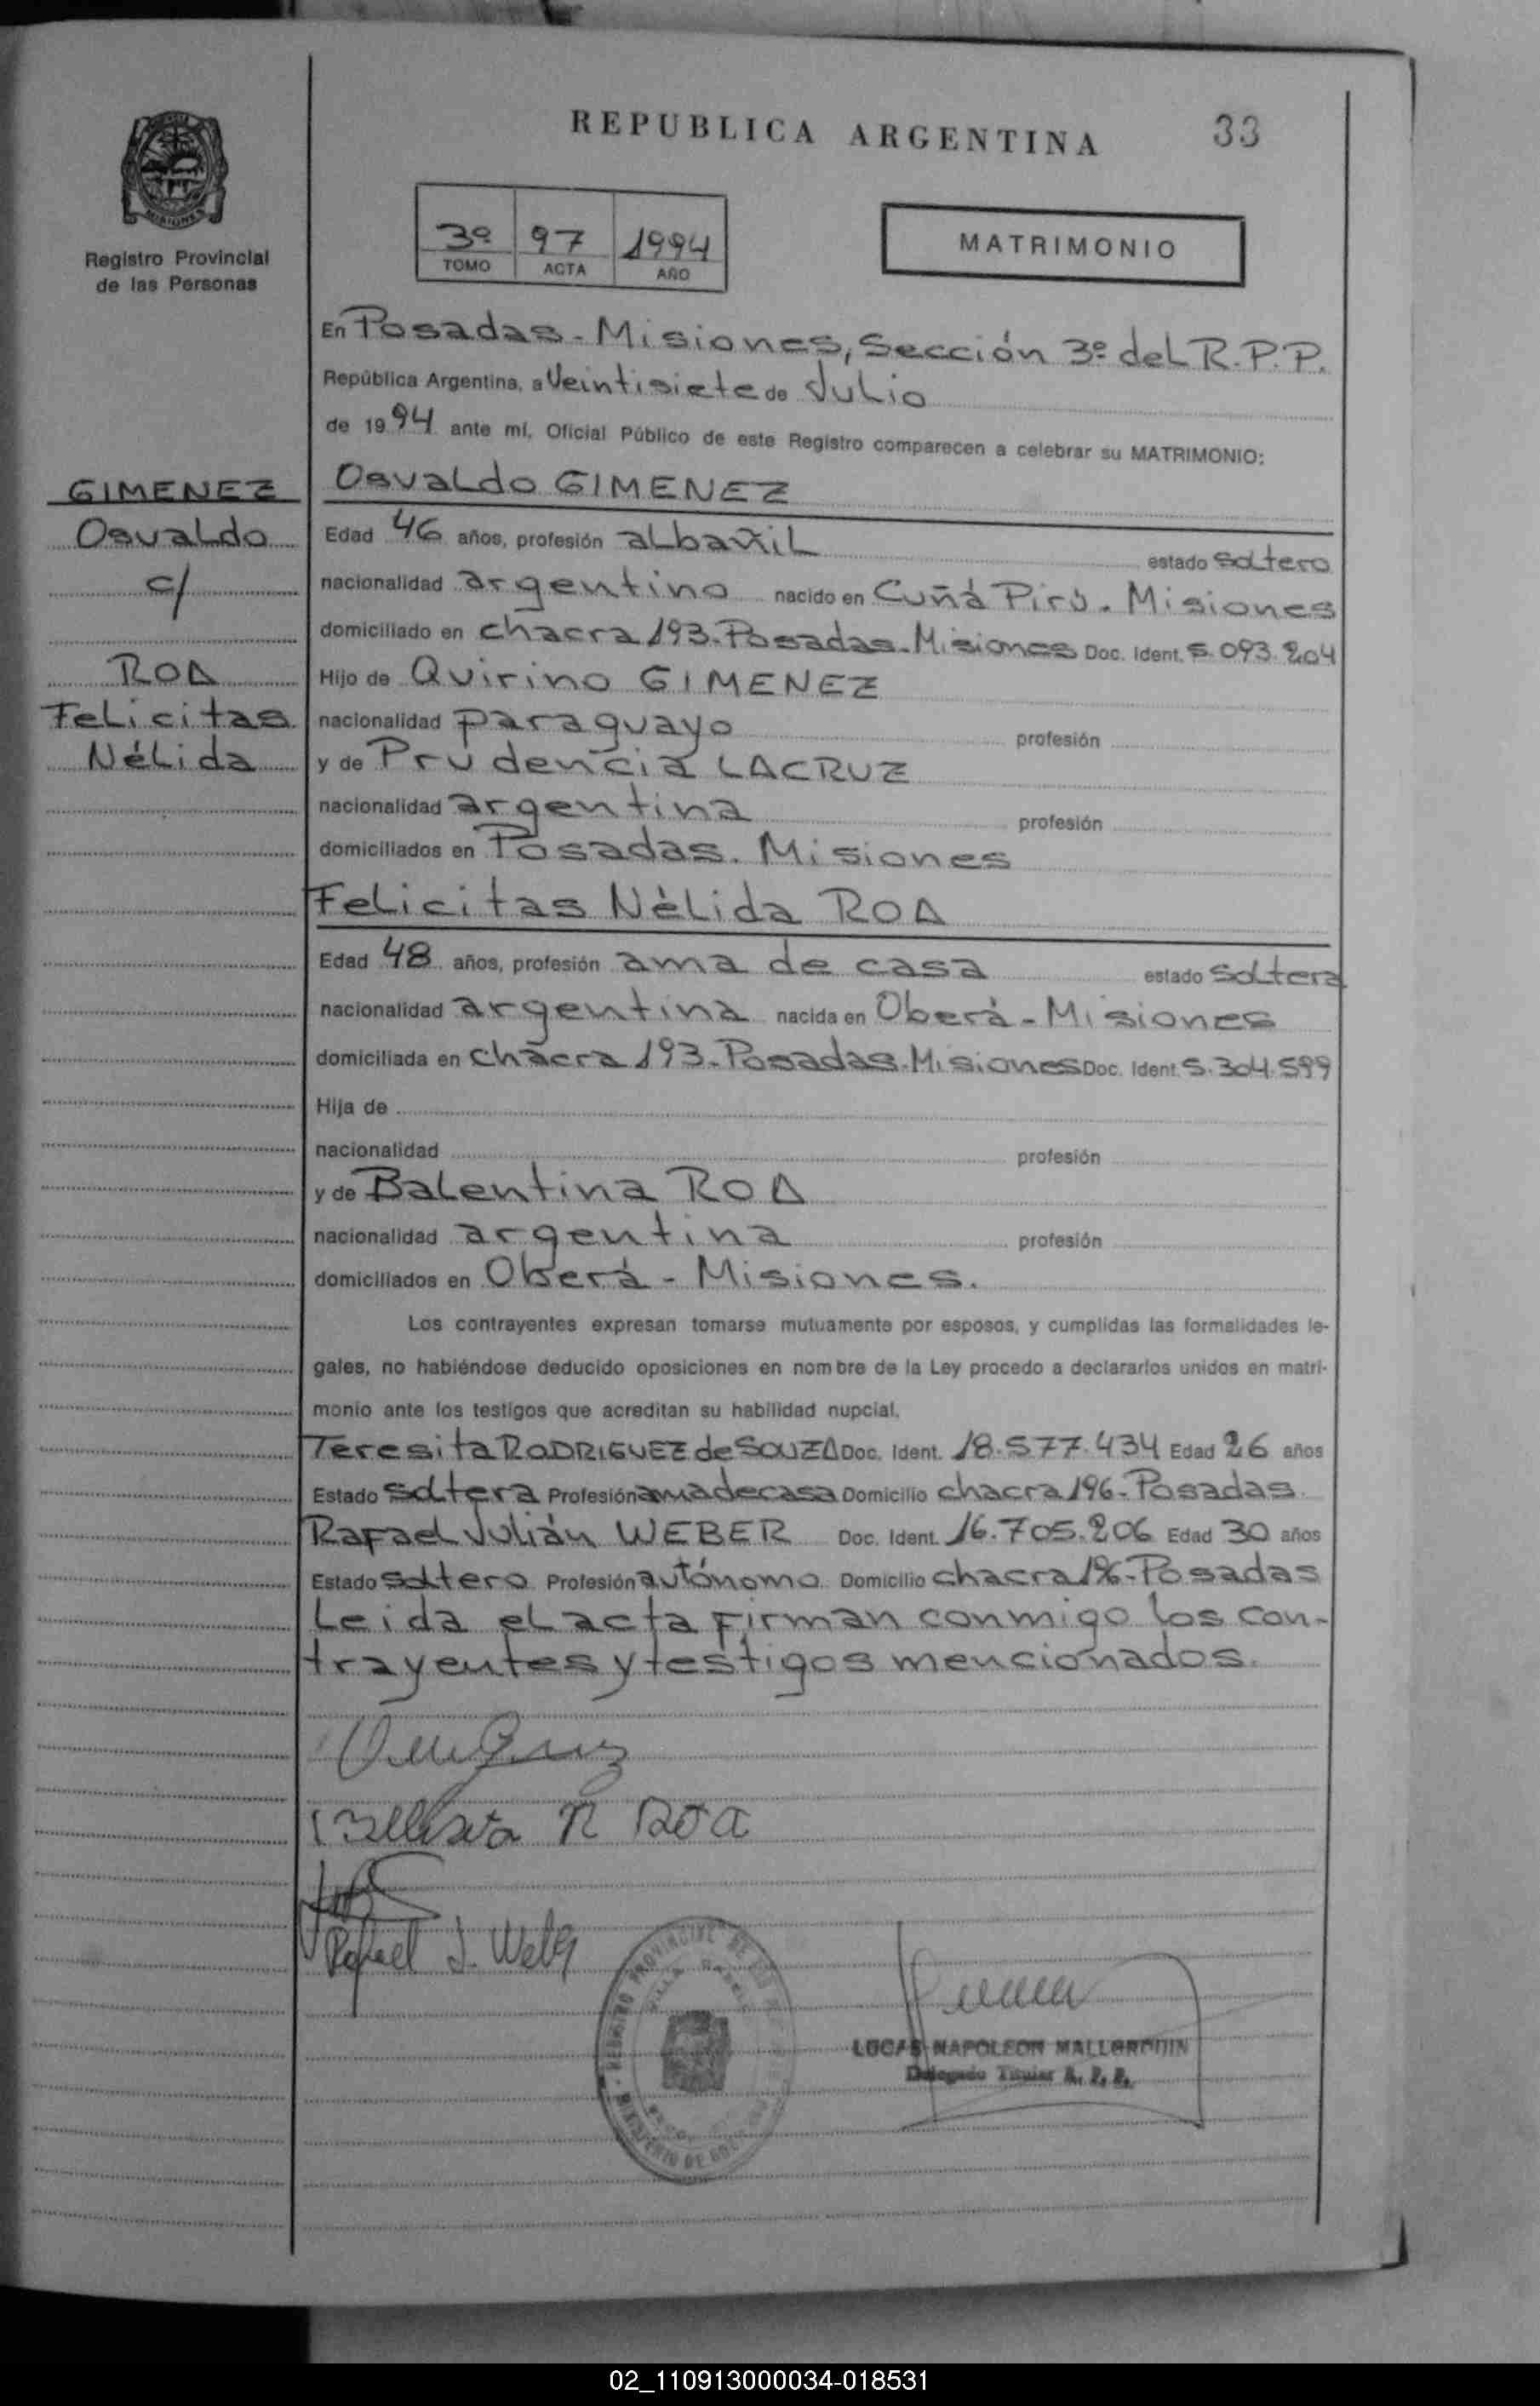 REPUBLICA ARGENTINA
33
MISIONES
Registro Provincial
de las Personas
3º 97 1994
TOMO ACTA AÑO
MATRIMONIO
En Posadas-Misiones, Sección 3º del R.P.P.
República Argentina, a Veintisiete de Julio
de 1994 ante mí, Oficial Público de este Registro comparecen a celebrar su MATRIMONIO:
GIMENEZ
Osvaldo
c/
ROA
Felicitas
Nélida
Osvaldo GIMENEZ
Edad 46 años, profesión albañil estado soltero
nacionalidad argentino nacido en Cuñá Pirú. Misiones
domiciliado en chacra 193-Posadas-Misiones Doc. Ident. 5.093.204
Hijo de Quirino GIMENEZ
nacionalidad paraguayo profesión
y de Prudencia LACRUZ
nacionalidad argentina profesión
domiciliados en Posadas. Misiones
Felicitas Nélida ROA
Edad 48 años, profesión ama de casa estado soltera
nacionalidad argentina nacida en Oberá-Misiones
domiciliada en chacra 193-Posadas-Misiones Doc. Ident. 5.304.599
Hija de
nacionalidad profesión
y de Balentina ROA
nacionalidad argentina profesión
domiciliados en Oberá-Misiones.
Los contrayentes expresan tomarse mutuamente por esposos, y cumplidas las formalidades le-
gales, no habiéndose deducido oposiciones en nombre de la Ley procedo a declararlos unidos en matri-
monio ante los testigos que acreditan su habilidad nupcial.
Teresita RODRIGUEZ de SOUZA Doc. Ident. 18.577.434 Edad 26 años
Estado soltera Profesión ama de casa Domicilio chacra 196-Posadas.
Rafael Julián WEBER Doc. Ident. 16.705.206 Edad 30 años
Estado soltero Profesión autónomo Domicilio chacra 196-Posadas
Leida el acta firman conmigo los con-
trayentes y testigos mencionados.
N Roa
Rafael J. Weber
LUCAS NAPOLEON MALLORQUIN
Delegado Titular R. P. P.
02_110913000034-018531